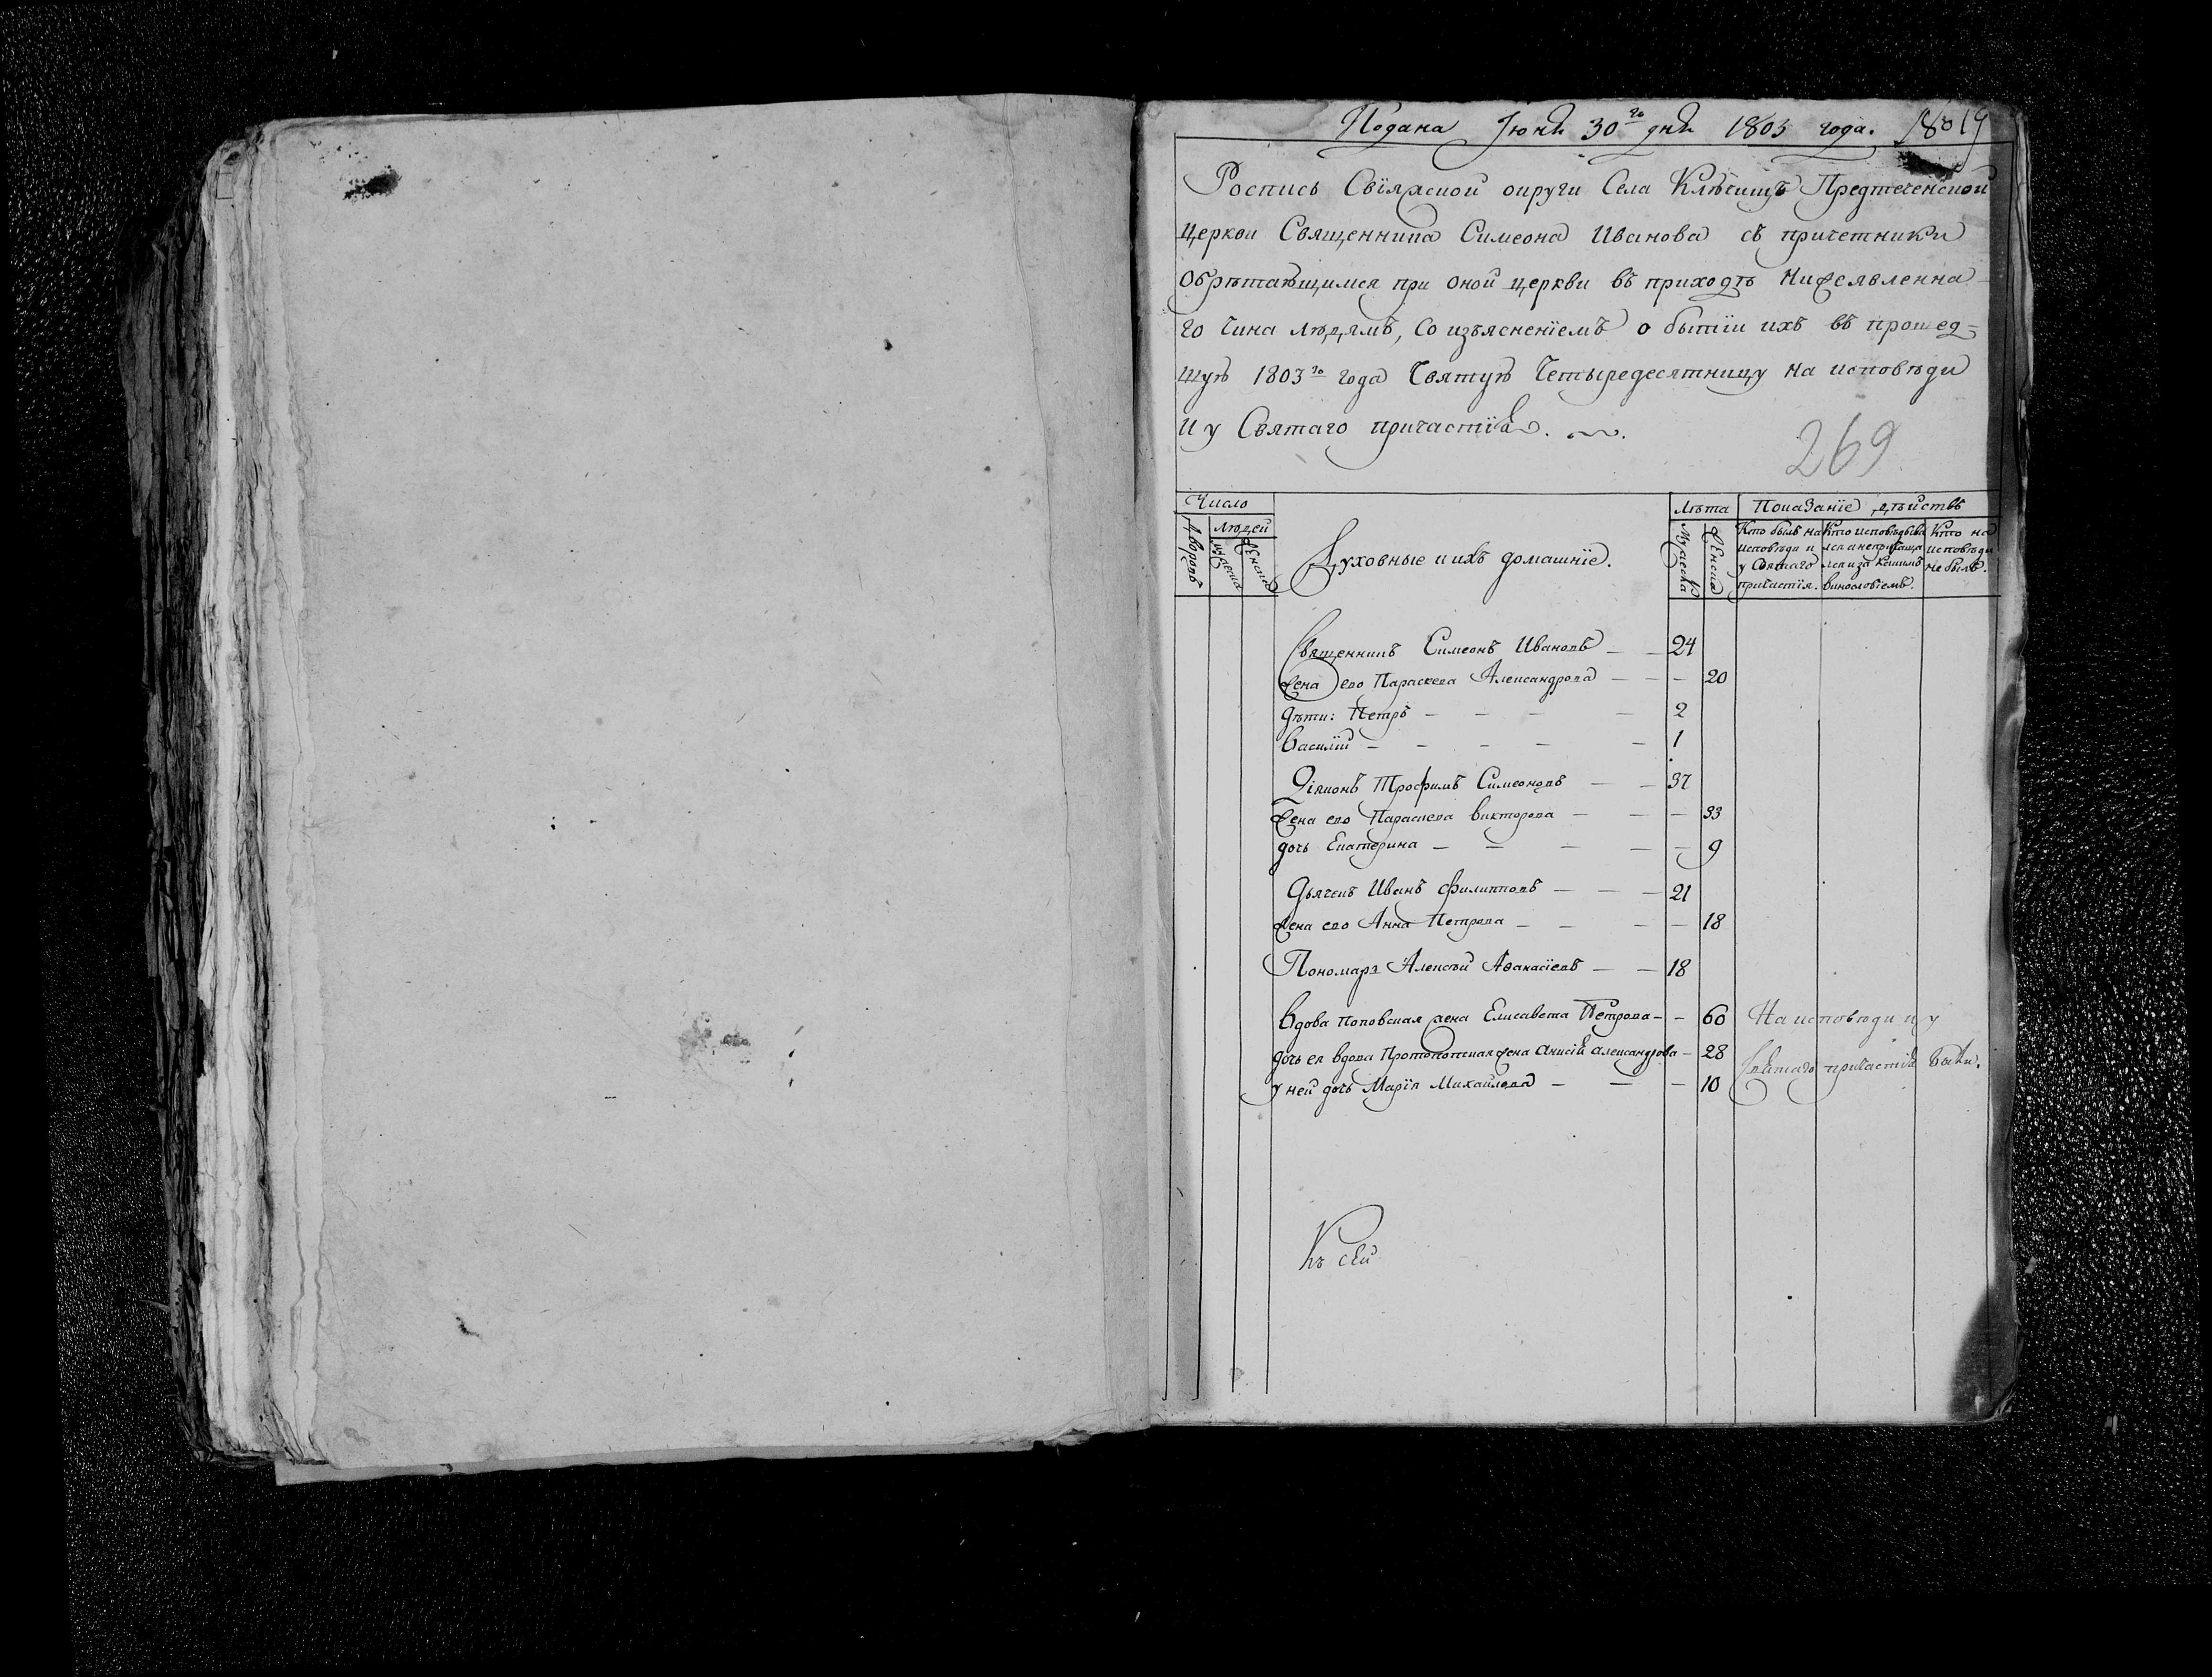 Подана Іюня 30го дня 1803 года.
Роспись Свіяжской округи Села Клѣчищъ Предтеченской
церкви Священника Симеона Иванова съ причетники
Обрѣтающимся при оной церкви въ приходѣ Нижеявленна
го Чина людямъ, Со изъясненіемъ о бытіи ихъ въ прошед=
шую 1803го года Святую Четыредесятницу на исповѣди
И у Святаго причастія.
269
Число
Лѣта
Показаніе дѣйствъ
Дворовъ
людей
мужеска
женска
Духовные и ихъ домашніе.
Мужеска
Женска
Кто былъ на исповѣди и у Святаго причастія.
Кто исповѣдывался а не причащался и за какимъ винословіемъ.
Кто на исповѣди не былъ.
Священникъ Симеонъ Ивановъ — — 24
жена ево Параскева Александрова — — — 20
дѣти: Петръ — — — — 2
Василій — — — — — 1
Діаконъ Трофимъ Симеоновъ — — 37
жена ево Параскева Викторова — — — 33
дочь Екатерина — — — — — 9
Дьячекъ Иванъ Филипповъ — — — 21
жена ево Анна Петрова — — — — 18
Пономарь Алексѣй Аѳанасіевъ — — 18
Вдова поповская жена Елисавета Петрова — — 60 На исповѣди и у
дочь ея вдова Протопопская жена Анисія Александрова — 28 Святаго причастія были.
у ней дочь Марія Михайлова — — — 10
Къ сей